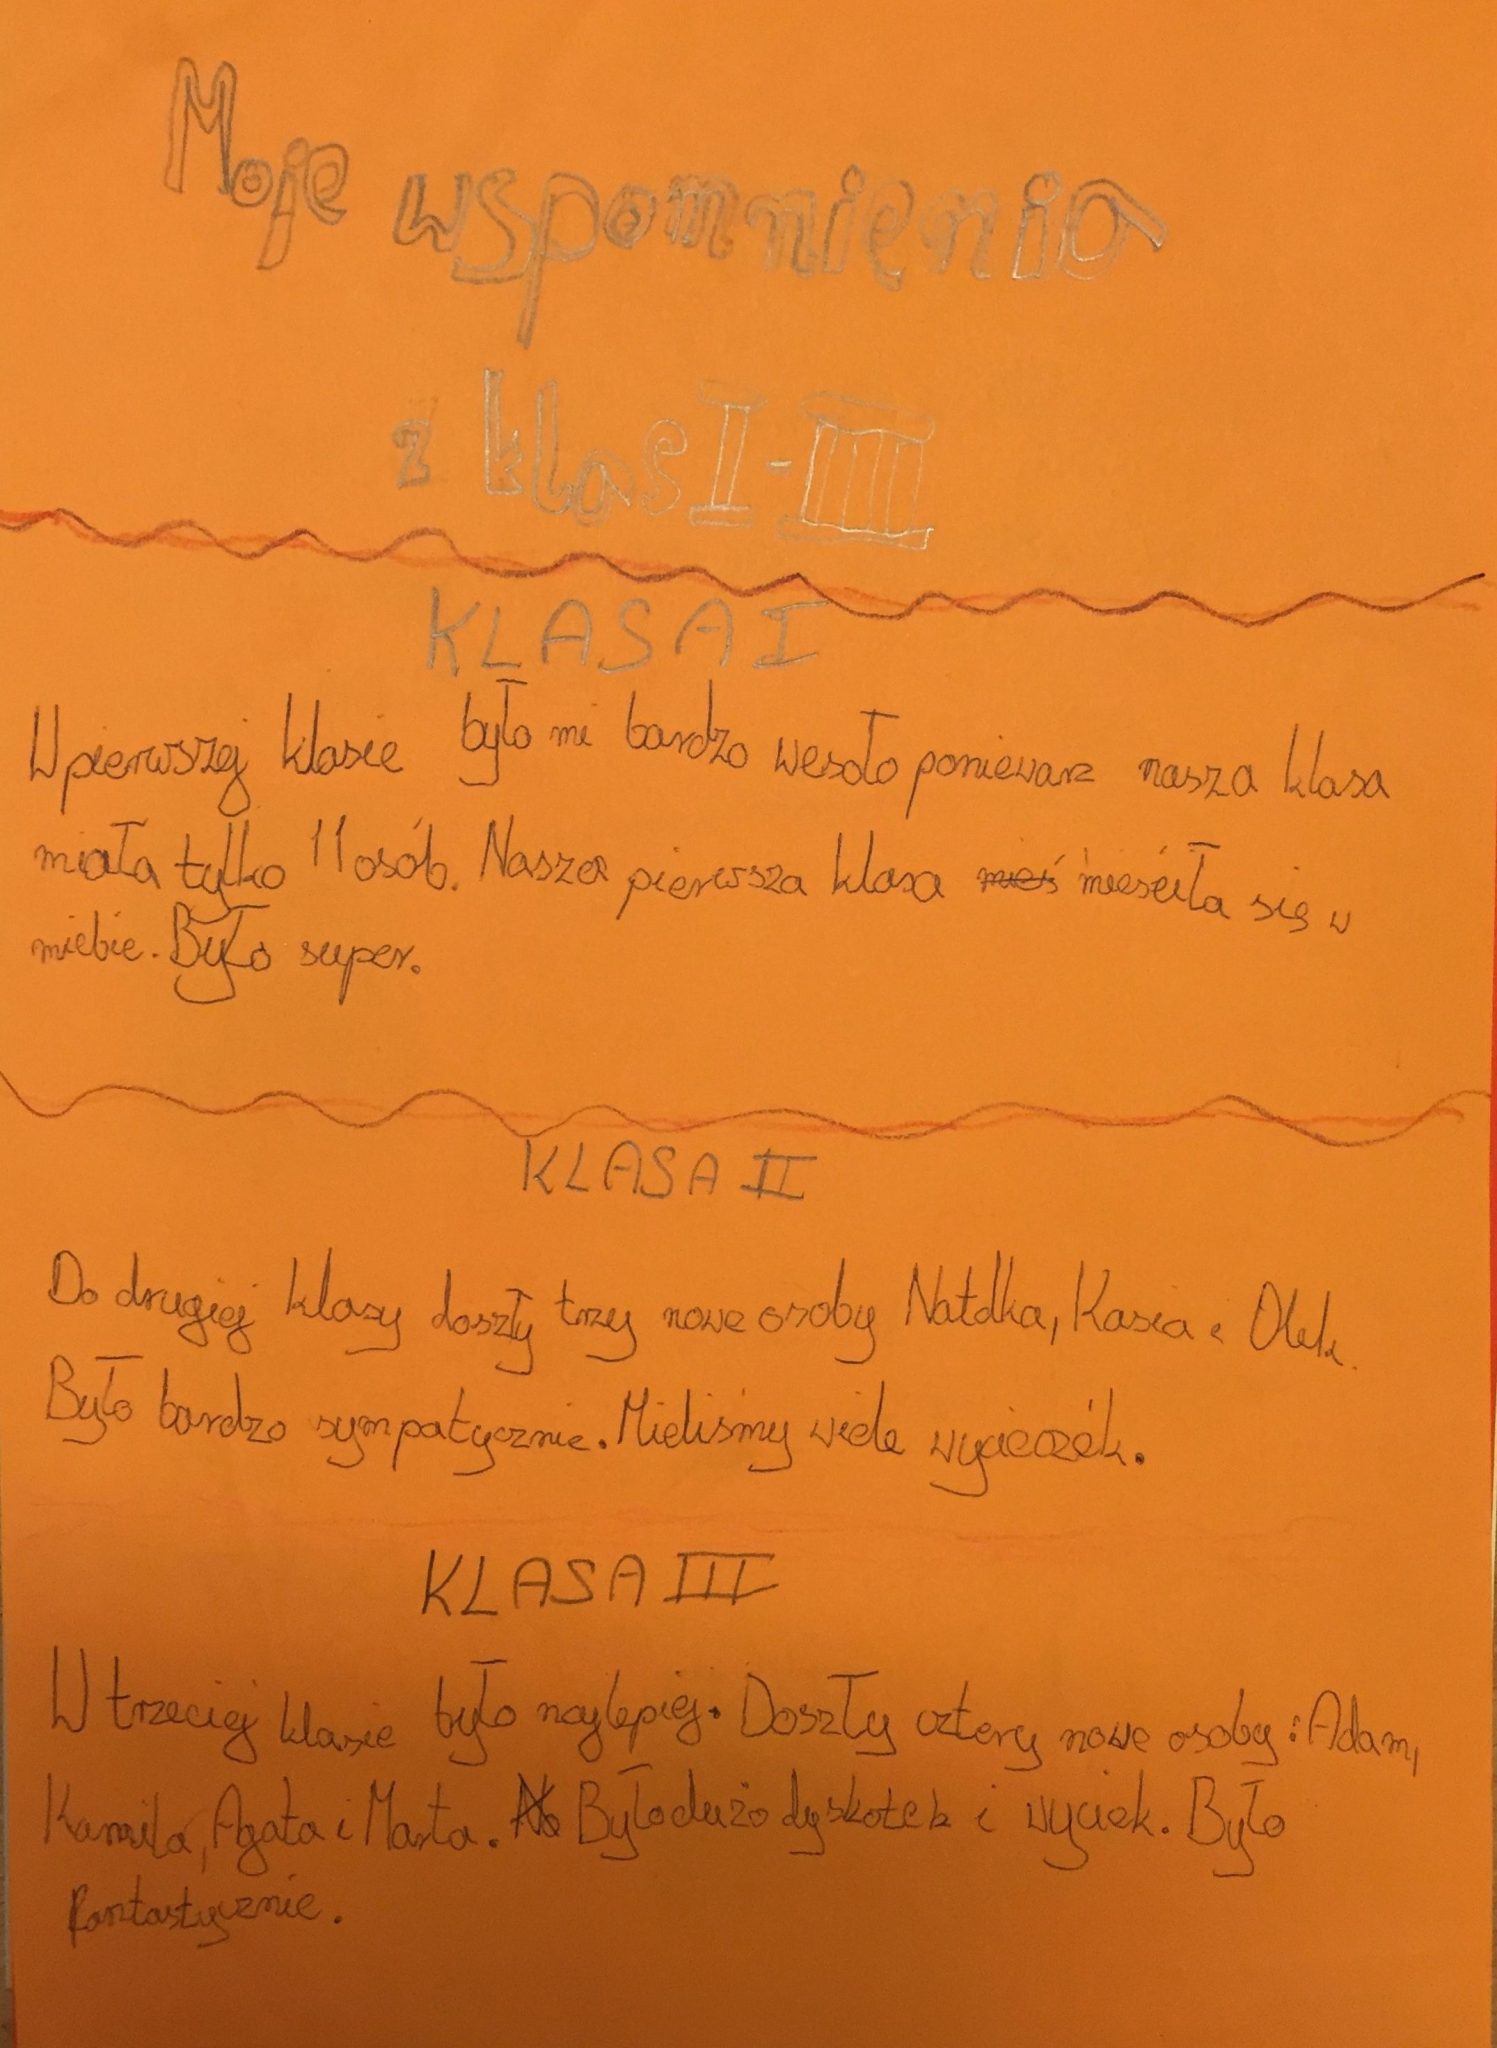 Moje wspomnienia
z klas I-III
KLASA I
W pierwszej klasie było mi bardzo wesoło poniewarz nasza klasa
miała tylko 11 osób. Nasza pierwsza klasa mieś mieściła się w
niebie. Było super.
KLASA II
Do drugiej klasy doszły trzy nowe osoby Natdka, Kasia i Olek.
Było bardzo sympatycznie. Mieliśmy wiele wycieczek.
KLASA III
W trzeciej klasie było najlepiej. Doszły cztery nowe osoby: Adam,
Kamila, Agata i Marta. No Było dużo dyskotek i wyciek. Było
fantastycznie.